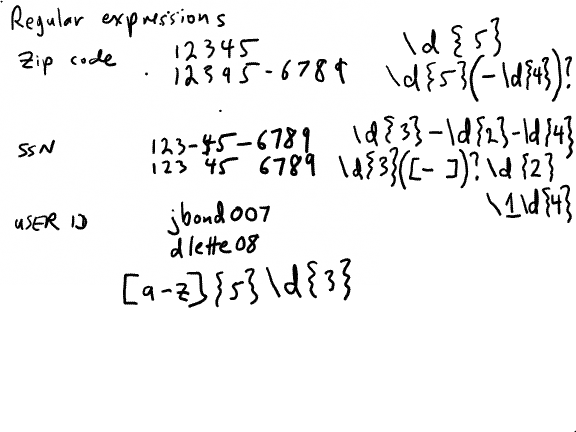 Regular expressions
Zip code 12345 \d{5}
12345-6789 \d{5}(-\d{4})?
SSN 123-45-6789 \d{3}-\d{2}-\d{4}
123 45 6789 \d{3}([- ])?\d{2}
\1\d{4}
USER ID jbond007
dlette08
[a-z]{5}\d{3}